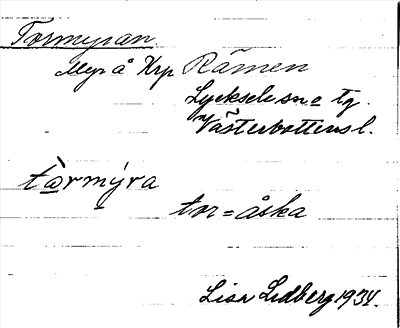 Tormyran
Myr å Krp Råmen
Lycksele sn o tg.
Västerbottens l.
tàrmýra
tor = åska
Lisa Lidberg 1934.